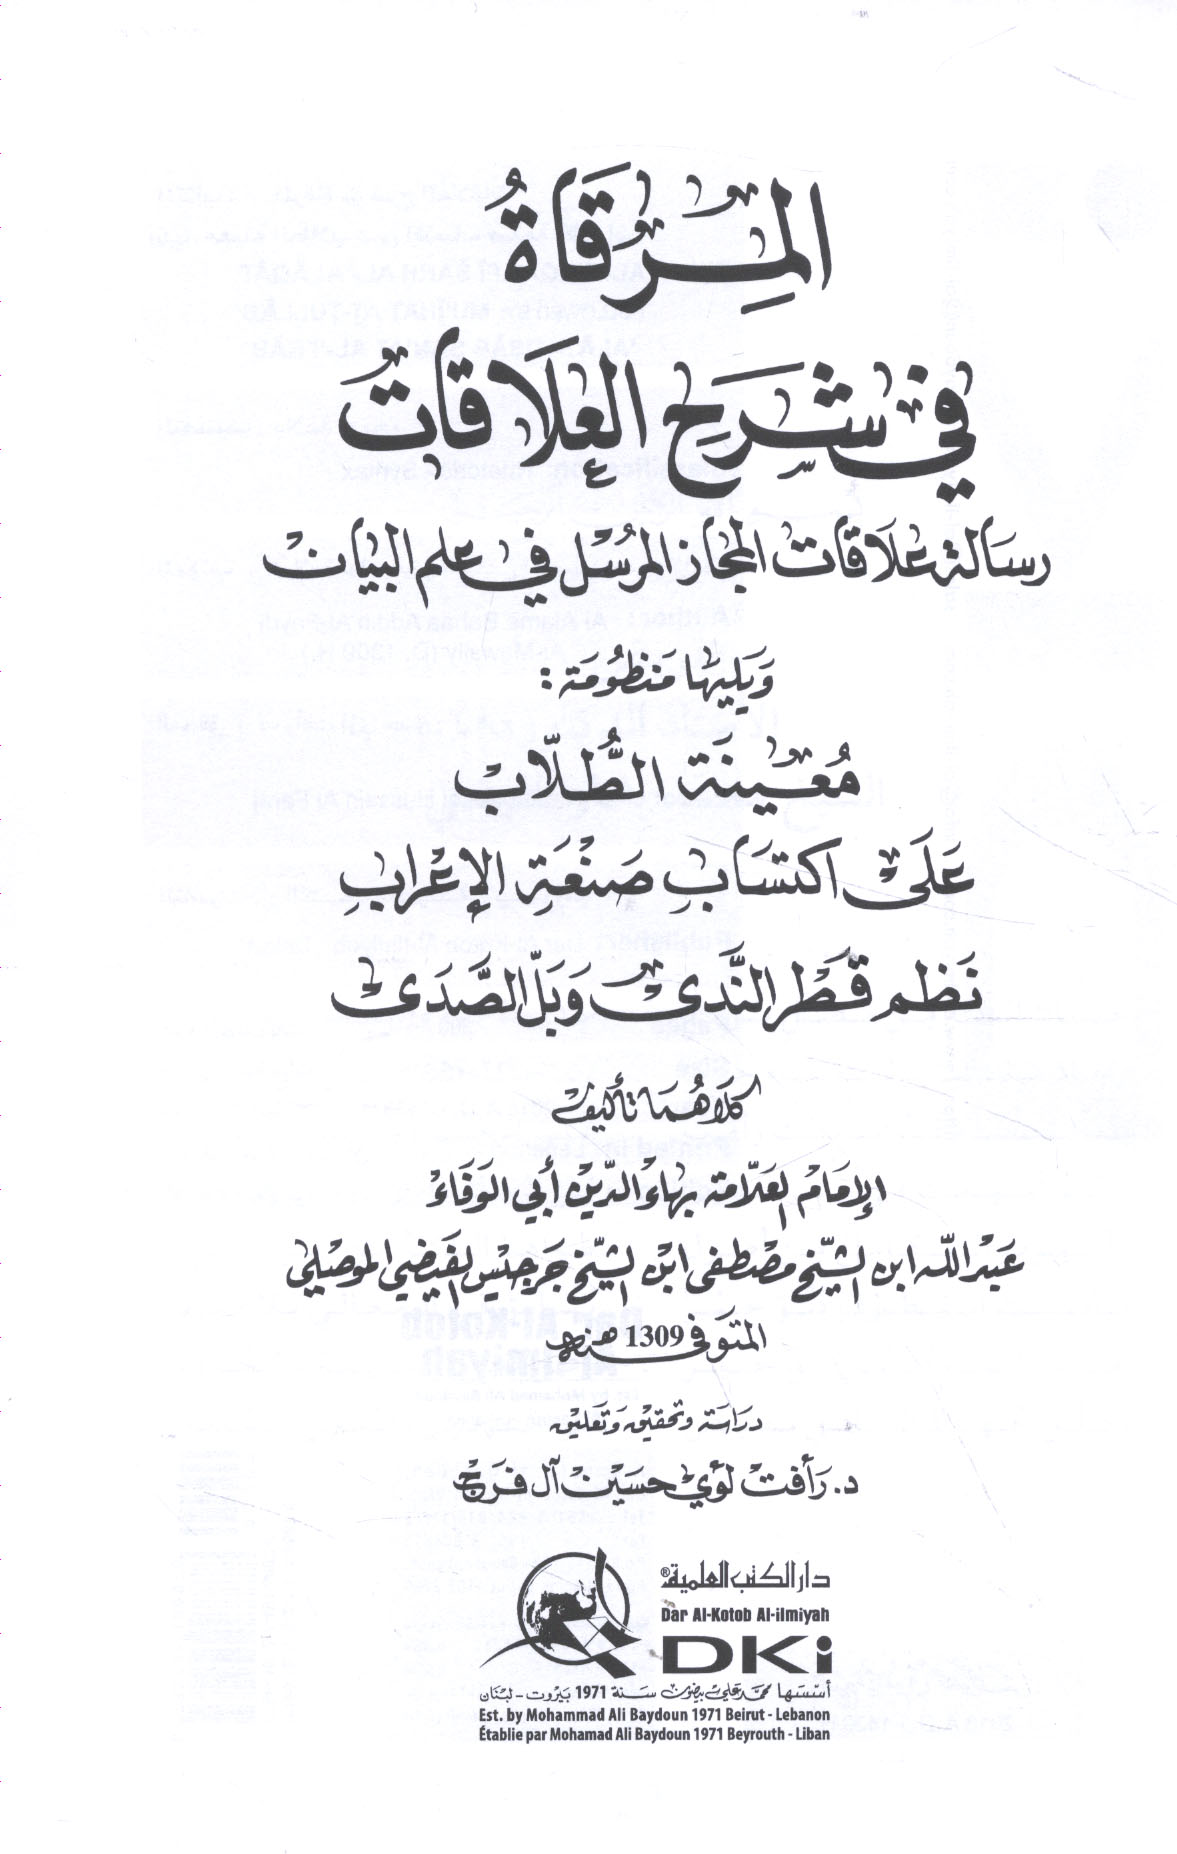 المِرْقَاةُ
في شَرْحِ العِلَاقَاتُ
رسَالة علَاقات المجَاز المرسُل في علم البيَان
وَيَليهَا مَنظُومَة:
مُعْينَة الطُّلّاب
عَلَى اكتسَابِ صَنْعَةِ الإعْرابِ
نَظم قَطْر النَّدى وَبَلّ الصَّدَى
كلَاهُمَا تأليف
الإمَام العَلّامة بهَاء الدّين أبي الوَفَاء
عَبْد اللّه ابن الشّيْخ مصْطفى ابْن الشّيْخ جَرجيْس الفَيضيْ الموصْليْ
المتَوفى 1309 هـ
دراسَة وتحقيق وَتعليق
د. رَأفت لؤي حسَين آل فرَج
دار الكتب العلمية®
Dar Al-Kotob Al-ilmiyah
DKi
أسّسَها محمّد علي بيضون سَنة 1971 بَيروت - لبنَان
Est. by Mohammad Ali Baydoun 1971 Beirut - Lebanon
Établie par Mohamad Ali Baydoun 1971 Beyrouth - Liban